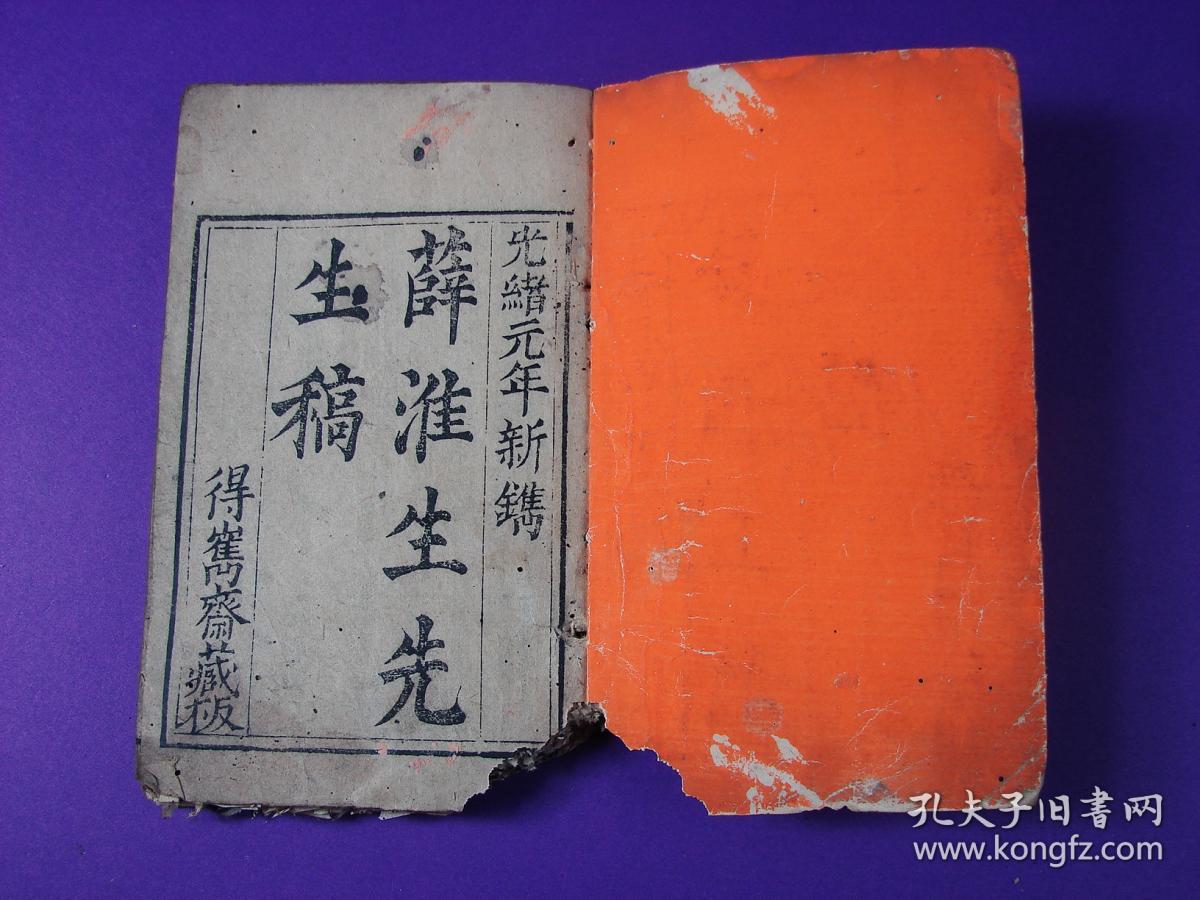 光緒元年新鐫
薛淮生先
生稿
得雋齋藏板
孔夫子旧書网
www.kongfz.com